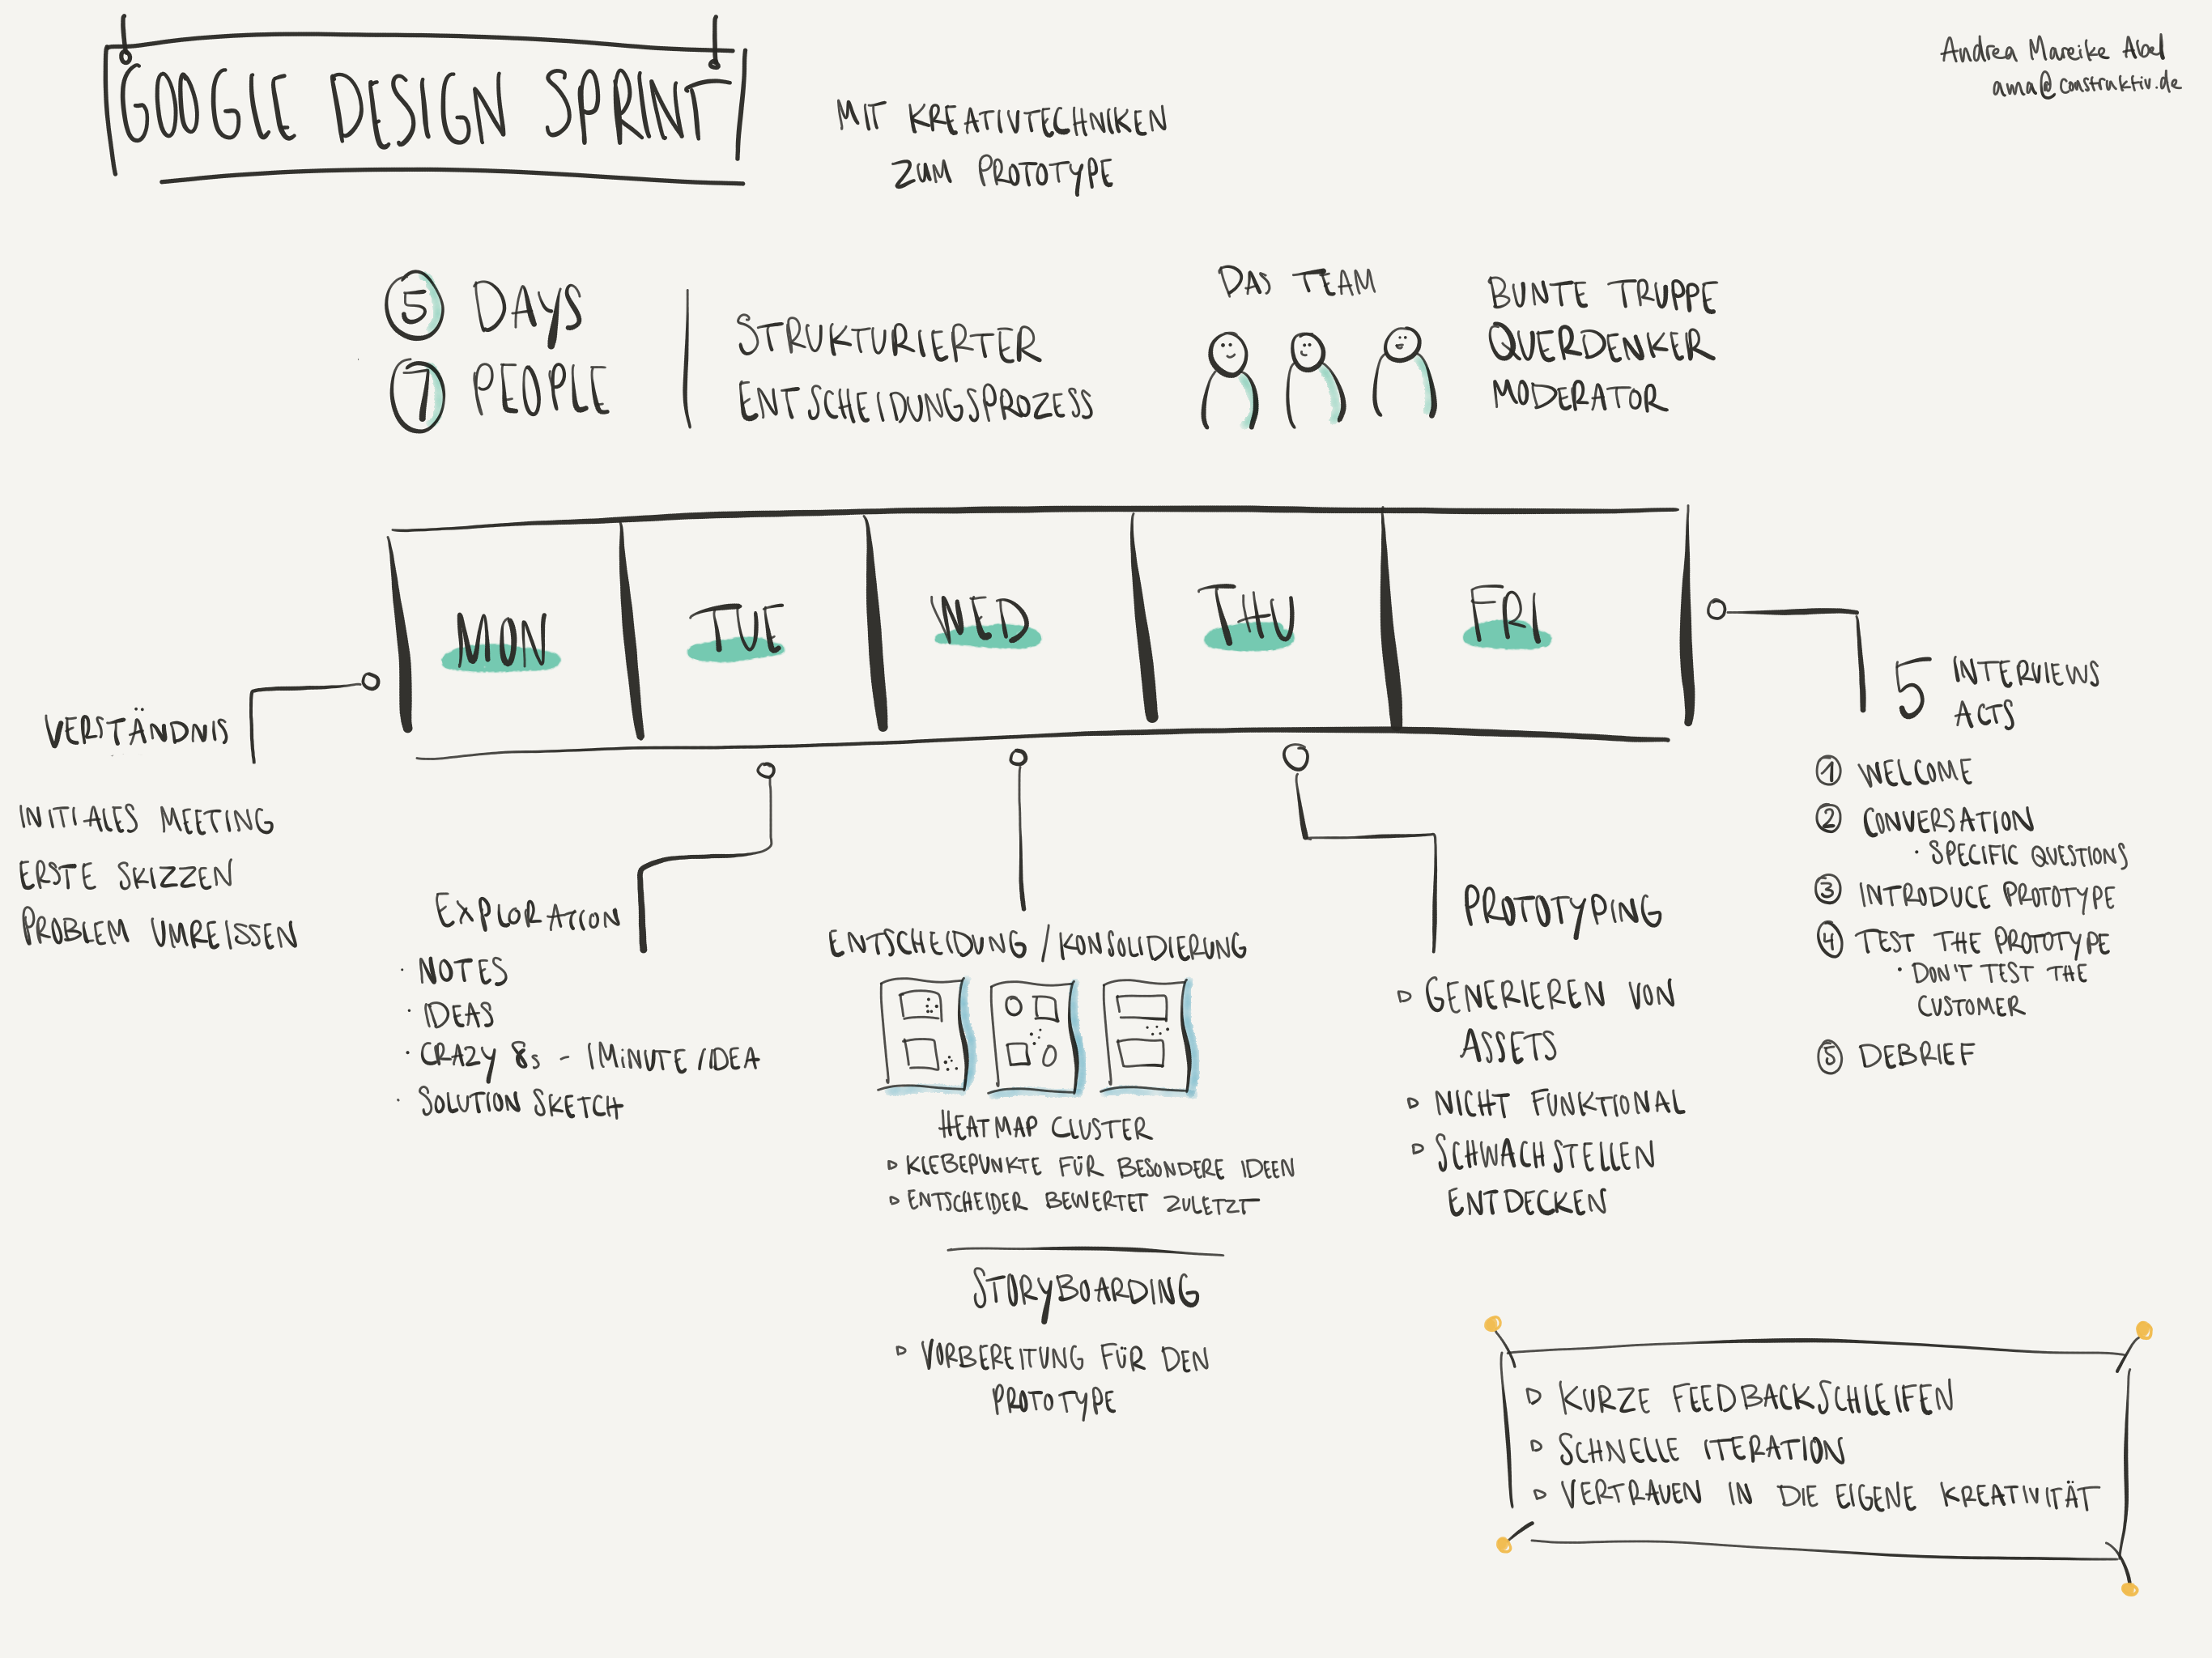 GOOGLE DESIGN SPRINT
MIT KREATIVTECHNIKEN
ZUM PROTOTYPE
Andrea Mareike Abel
ama@construktiv.de
5 DAYS
7 PEOPLE
STRUKTURIERTER
ENTSCHEIDUNGSPROZESS
DAS TEAM
BUNTE TRUPPE
QUERDENKER
MODERATOR
MON
TUE
WED
THU
FRI
VERSTÄNDNIS
INITIALES MEETING
ERSTE SKIZZEN
PROBLEM UMREISSEN
EXPLORATION
· NOTES
· IDEAS
· CRAZY 8s - 1MINUTE/IDEA
· SOLUTION SKETCH
ENTSCHEIDUNG / KONSOLIDIERUNG
HEATMAP CLUSTER
▹ KLEBEPUNKTE FÜR BESONDERE IDEEN
▹ ENTSCHEIDER BEWERTET ZULETZT
STORYBOARDING
▹ VORBEREITUNG FÜR DEN
PROTOTYPE
PROTOTYPING
▹ GENERIEREN VON
ASSETS
▹ NICHT FUNKTIONAL
▹ SCHWACHSTELLEN
ENTDECKEN
5 INTERVIEWS
ACTS
① WELCOME
② CONVERSATION
· SPECIFIC QUESTIONS
③ INTRODUCE PROTOTYPE
④ TEST THE PROTOTYPE
· DON'T TEST THE
CUSTOMER
⑤ DEBRIEF
▹ KURZE FEEDBACKSCHLEIFEN
▹ SCHNELLE ITERATION
▹ VERTRAUEN IN DIE EIGENE KREATIVITÄT